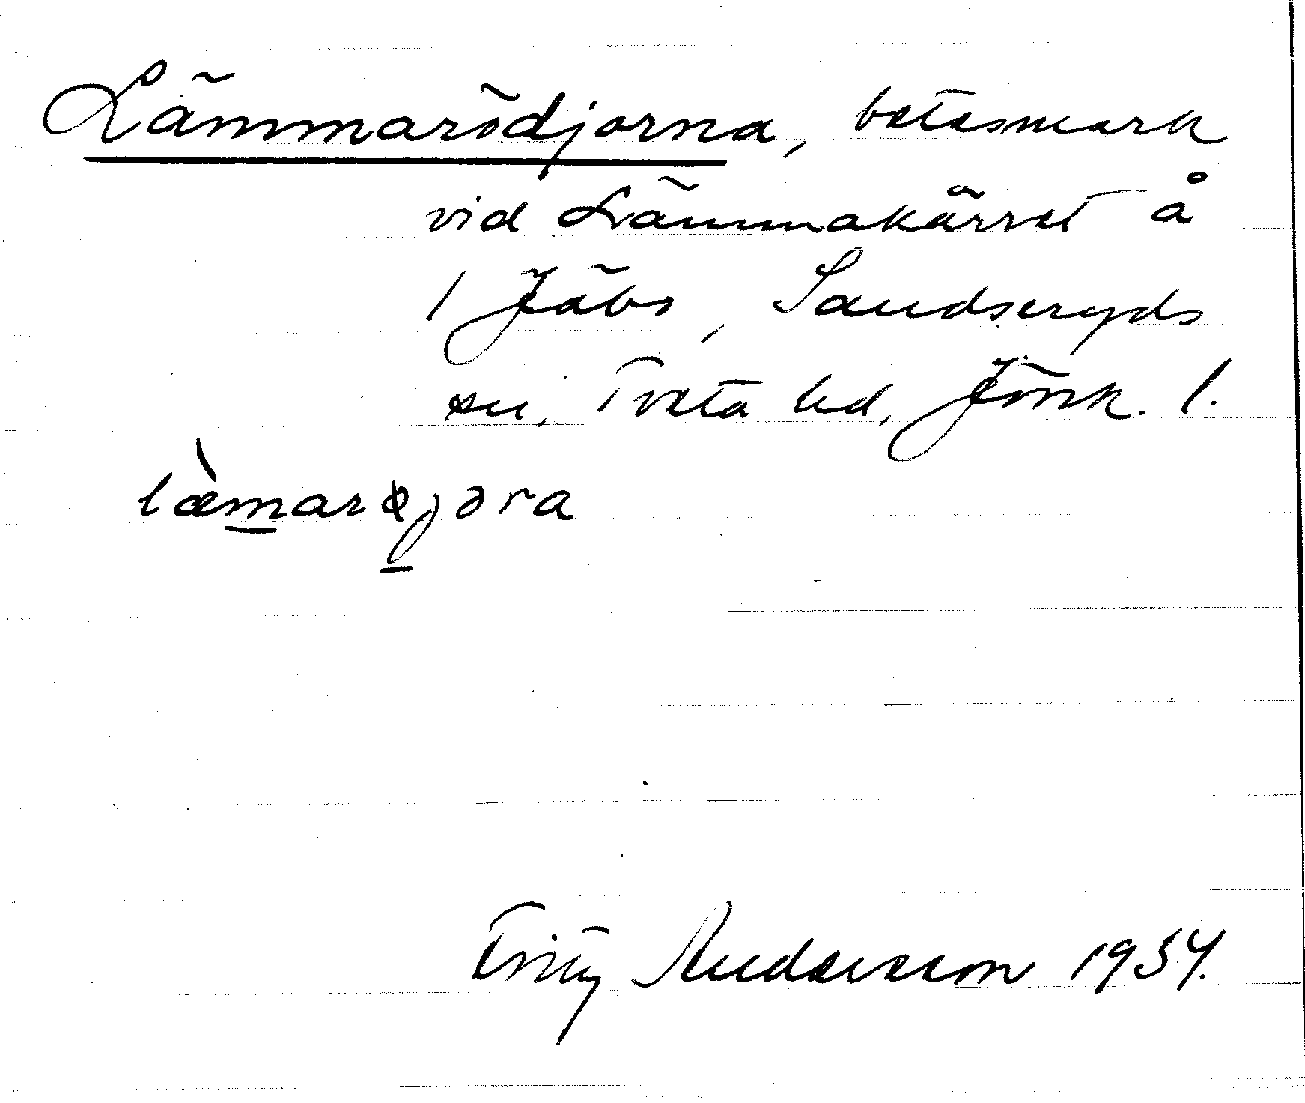 Lämmarödjorna, betesmark
vid Lämmakärret å
1 Jäbs, Sandseryds
sn, Tveta hd, Jönk. l.
Fritz Andersson 1934.